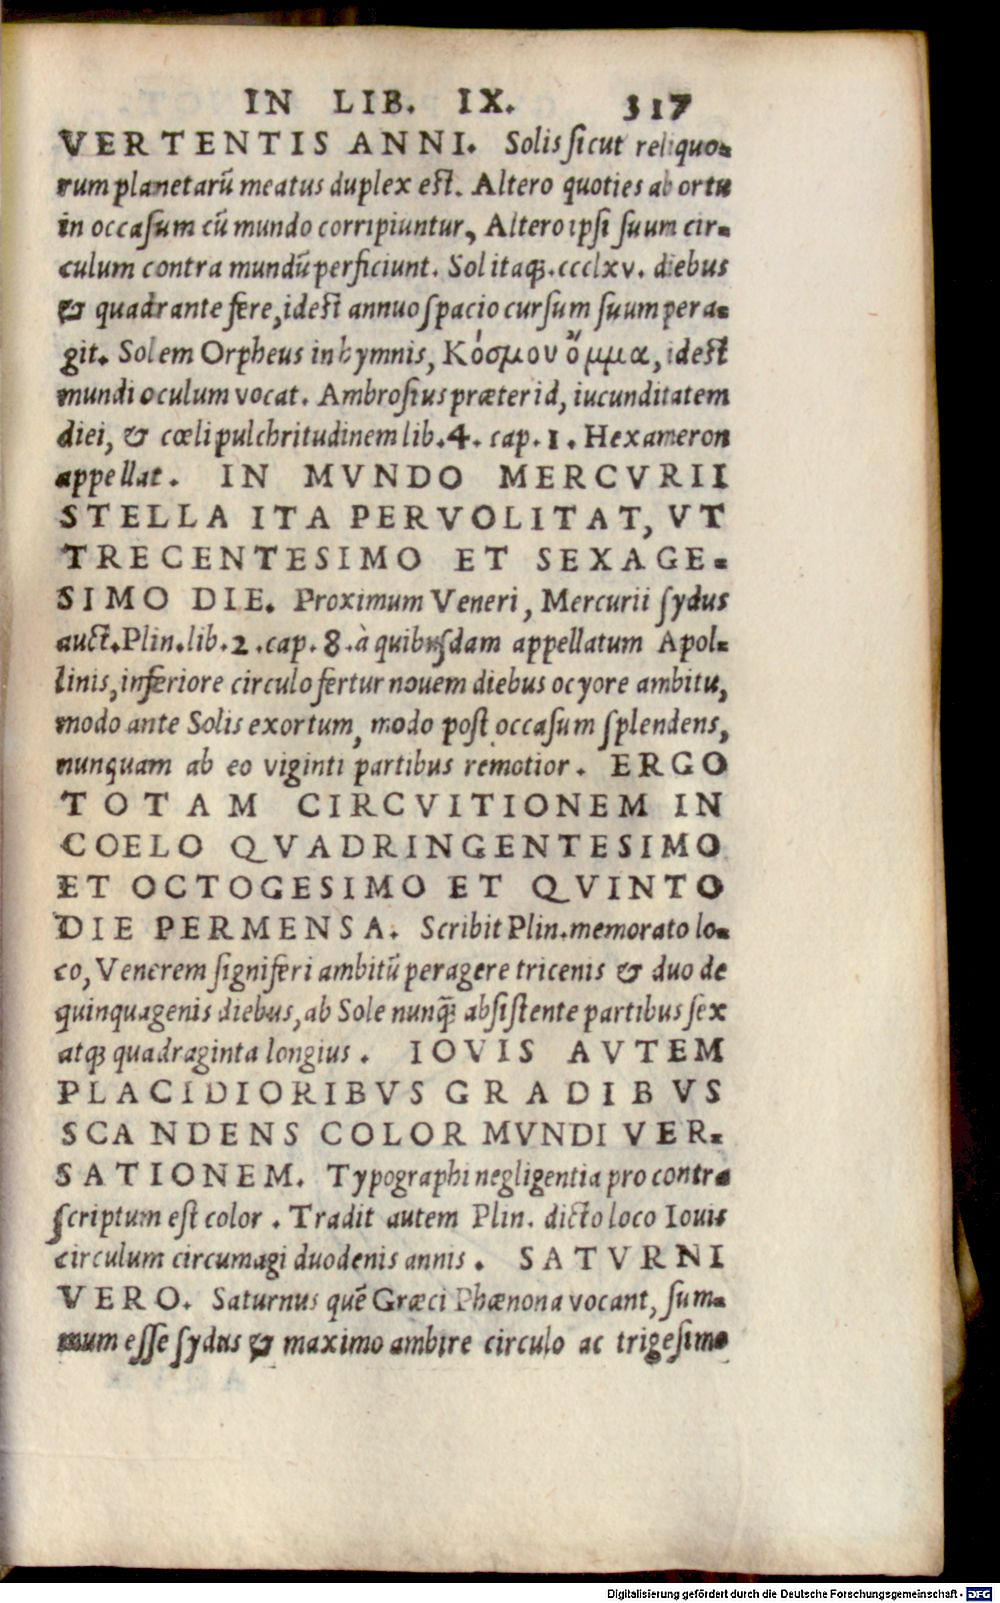 IN LIB. IX. 317
VERTENTIS ANNI. Solis sicut reliquo-
rum planetarũ meatus duplex est. Altero quoties ab ortu
in occasum cũ mundo corripiuntur, Altero ipsi suum cir-
culum contra mundũ perficiunt. Sol itaqꝫ. ccclxv. diebus
& quadrante fere, idest annuo spacio cursum suum pera-
git. Solem Orpheus in hymnis, Κόσμου ὄμμα, idest
mundi oculum vocat. Ambrosius præter id, iucunditatem
diei, & cœli pulchritudinem lib. 4. cap. 1. Hexameron
appellat. IN MVNDO MERCVRII
STELLA ITA PERVOLITAT, VT
TRECENTESIMO ET SEXAGE-
SIMO DIE. Proximum Veneri, Mercurii sydus
auct. Plin. lib. 2. cap. 8. à quibusdam appellatum Apol-
linis, inferiore circulo fertur nouem diebus ocyore ambitu,
modo ante Solis exortum, modo post occasum splendens,
nunquam ab eo viginti partibus remotior. ERGO
TOTAM CIRCVITIONEM IN
COELO QVADRINGENTESIMO
ET OCTOGESIMO ET QVINTO
DIE PERMENSA. Scribit Plin. memorato lo-
co, Venerem signiferi ambitũ peragere tricenis & duo de
quinquagenis diebus, ab Sole nunq̃ absistente partibus sex
atqꝫ quadraginta longius. IOVIS AVTEM
PLACIDIORIBVS GRADIBVS
SCANDENS COLOR MVNDI VER-
SATIONEM. Typographi negligentia pro contra
scriptum est color. Tradit autem Plin. dicto loco Iouis
circulum circumagi duodenis annis. SATVRNI
VERO. Saturnus quẽ Græci Phænona vocant, sum-
mum esse sydus & maximo ambire circulo ac trigesimo
Digitalisierung gefördert durch die Deutsche Forschungsgemeinschaft - DFG